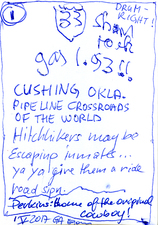 1
DRUM-
RIGHT!
Sham
rock
gas 1.93!!
CUSHING OKLA.
PIPELINE CROSSROADS
OF THE WORLD
Hitchhikers may be
Escaping inmates...
ya ya give them a ride
road sign.
Perkins: home of the original
cowboy!
2017